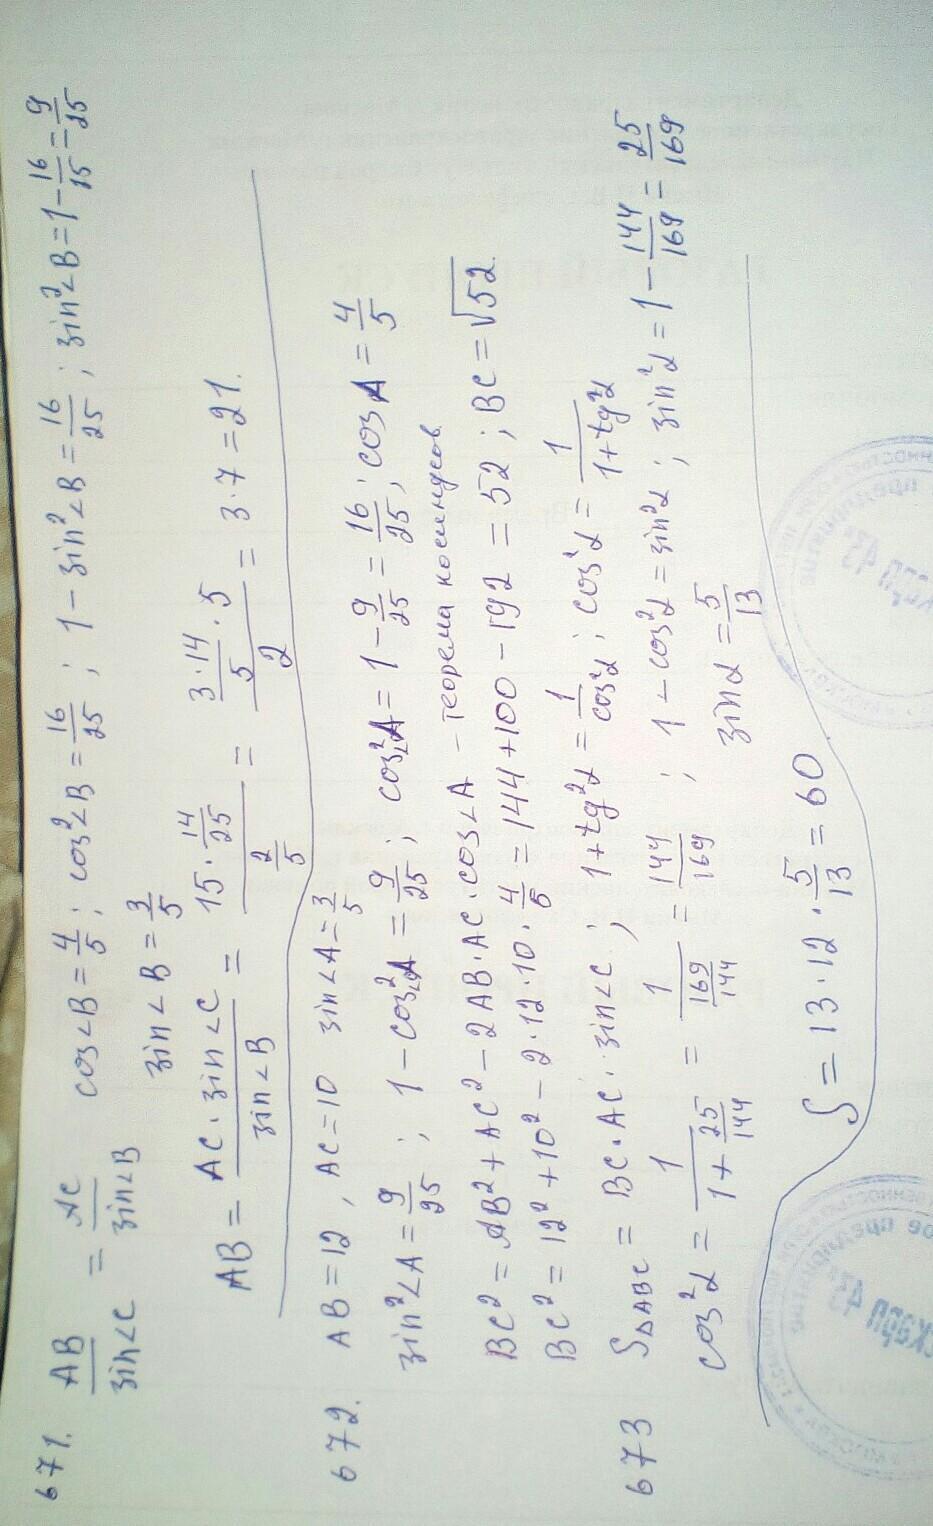 671. AB/sin∠C = AC/sin∠B cos∠B = 4/5; cos²∠B = 16/25; 1 - sin²∠B = 16/25; sin²∠B = 1 - 16/25 = 9/25
sin∠B = 3/5
AB = AC · sin∠C/sin∠B = 15 · 14/25/2/5 = 3·14/5 · 5/2 = 3·7 = 21.
672. AB = 12, AC = 10 sin∠A = 3/5
sin²∠A = 9/25; 1 - cos²∠A = 9/25; cos²∠A = 1 - 9/25 = 16/25; cos A = 4/5
BC² = AB² + AC² - 2AB·AC·cos∠A - теорема косинусов
BC² = 12² + 10² - 2·12·10·4/5 = 144 + 100 - 192 = 52; BC = √52
673 S△ABC = BC·AC·sin∠C; 1 + tg²α = 1/cos²α; cos²α = 1/1+tg²α
cos²α = 1/1+25/144 = 1/169/144 = 144/169; 1 - cos²α = sin²α; sin²α = 1 - 144/169 = 25/169
sinα = 5/13
S = 13·12·5/13 = 60